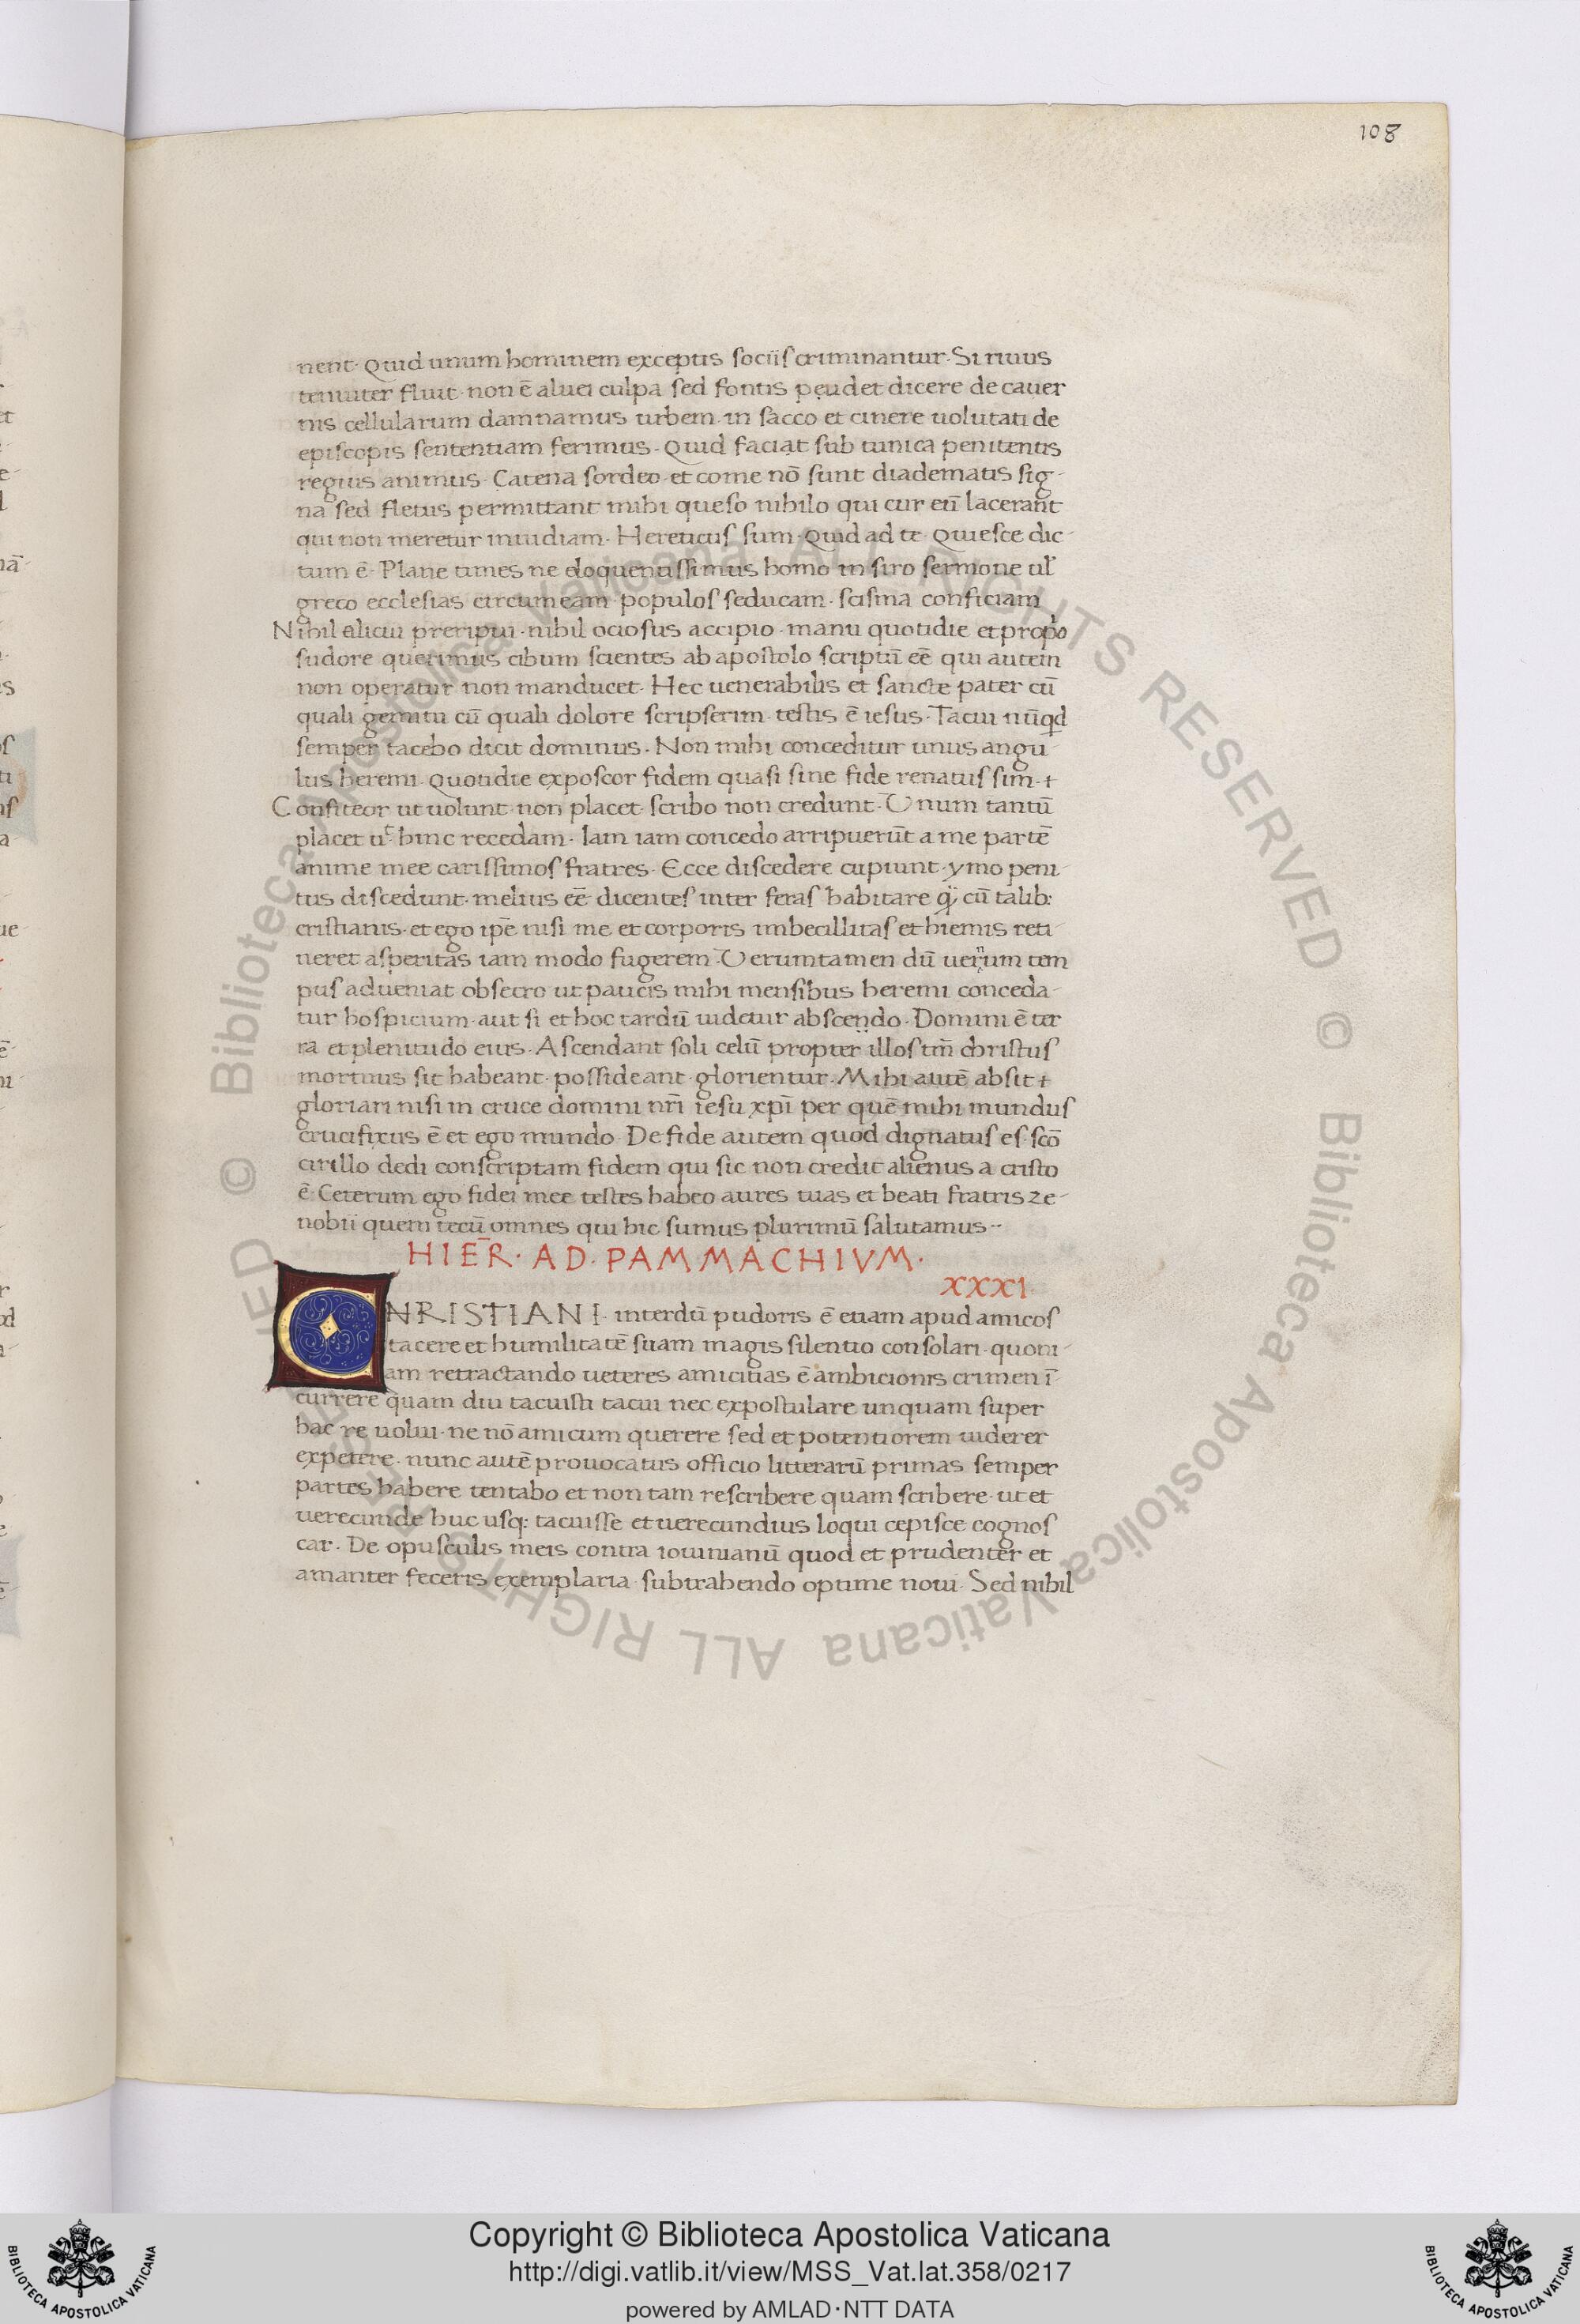 108
nent· Quid unum hominem exceptis sociis criminantur· Si riuus
tenuiter fluit· non ē aluei culpa sed fontis pęudet dicere de cauer
nis cellularum damnamus urbem· in sacco et cinere uolutati de
episcopis sententiam ferimus· Quid faciat sub tunica penitentis
regius animus· Catena sordeo· et come nō sunt diadematis sig-
na sed fletus permittant mihi queso nihilo qui cur eū lacerant
qui non meretur inuidiam· Hereticus sum· Quid ad te· Quiesce dic-
tum ē· Plane times ne eloquentissimus homo in siro sermone ul'
greco ecclesias circumeam· populos seducam· scisma conficiam
Nihil alicui preripui· nihil ociosus accipio· manu quotidie et prop'o
sudore querimus cibum scientes ab apostolo scriptū eē qui autem
non operatur non manducet· Hec uenerabilis et sancte pater cū
quali gemitu cū quali dolore scripserim· testis ē iesus· Tacui nūqd
semper tacebo dicit dominus· Non mihi conceditur unus angu-
lus heremi· Quotidie exposcor fidem quasi sine fide renatus sim·+
Confiteor ut uolunt· non placet· scribo non credunt· Unum tantū
placet ut hinc recedam· Iam iam concedo arripuerūt a me partē
anime mee carissimos fratres· Ecce discedere cupiunt· ymo peni-
tus discedunt· melius eē dicentes inter feras habitare q̈ȝ cū talib:
cristianis· et ego ipē nisi me et corporis imbecillitas et hiemis reti-
neret asperitas iam modo fugerem· Uerumtamen dū uer̈num tem
pus adueniat obsecro ut paucis mihi mensibus heremi conceda-
tur hospicium· aut si et hoc tardū uidetur abscendo· Domini ē ter
ra et plenitudo eius· Ascendant soli celū propter illos tm̄ christus
mortuus sit habeant· possideant· glorientur· Mihi autē absit +
gloriari nisi in cruce domini nr̄i iesu xp̄i per quē mihi mundus
crucifixus ē et ego mundo· De fide autem quod dignatus es· scō
cirillo dedi conscriptam fidem qui sic non credit alienus a cristo
ē· Ceterum ego fidei mee testes habeo aures tuas et beati fratris ze-
nobii quem tecū omnes qui hic sumus plurimū salutamus··
HIER̄· AD· PAMMACHIVM·
XXXI
CNRISTIANI· interdū pudoris ē etiam apud amicos
tacere et humilitatē suam magis silentio consolari· quoni-
am retractando ueteres amicitias ē ambicionis crimen ī-
currere quam diu tacuisti tacui nec expostulare unquam super
hac re uolui· ne nō amicum querere sed et potentiorem uiderer
expetere· nunc autē prouocatus officio litterarū primas semper
partes habere tentabo et non tam rescribere quam scribere· ut et
uerecunde huc usq: tacuisse et uerecundius loqui cepisce cognos
car· De opusculis meis contra iouinianū quod et prudenter et
amanter feceris exemplaria· subtrahendo optime noui· Sed nihil
Copyright © Biblioteca Apostolica Vaticana
http://digi.vatlib.it/view/MSS_Vat.lat.358/0217
powered by AMLAD·NTT DATA